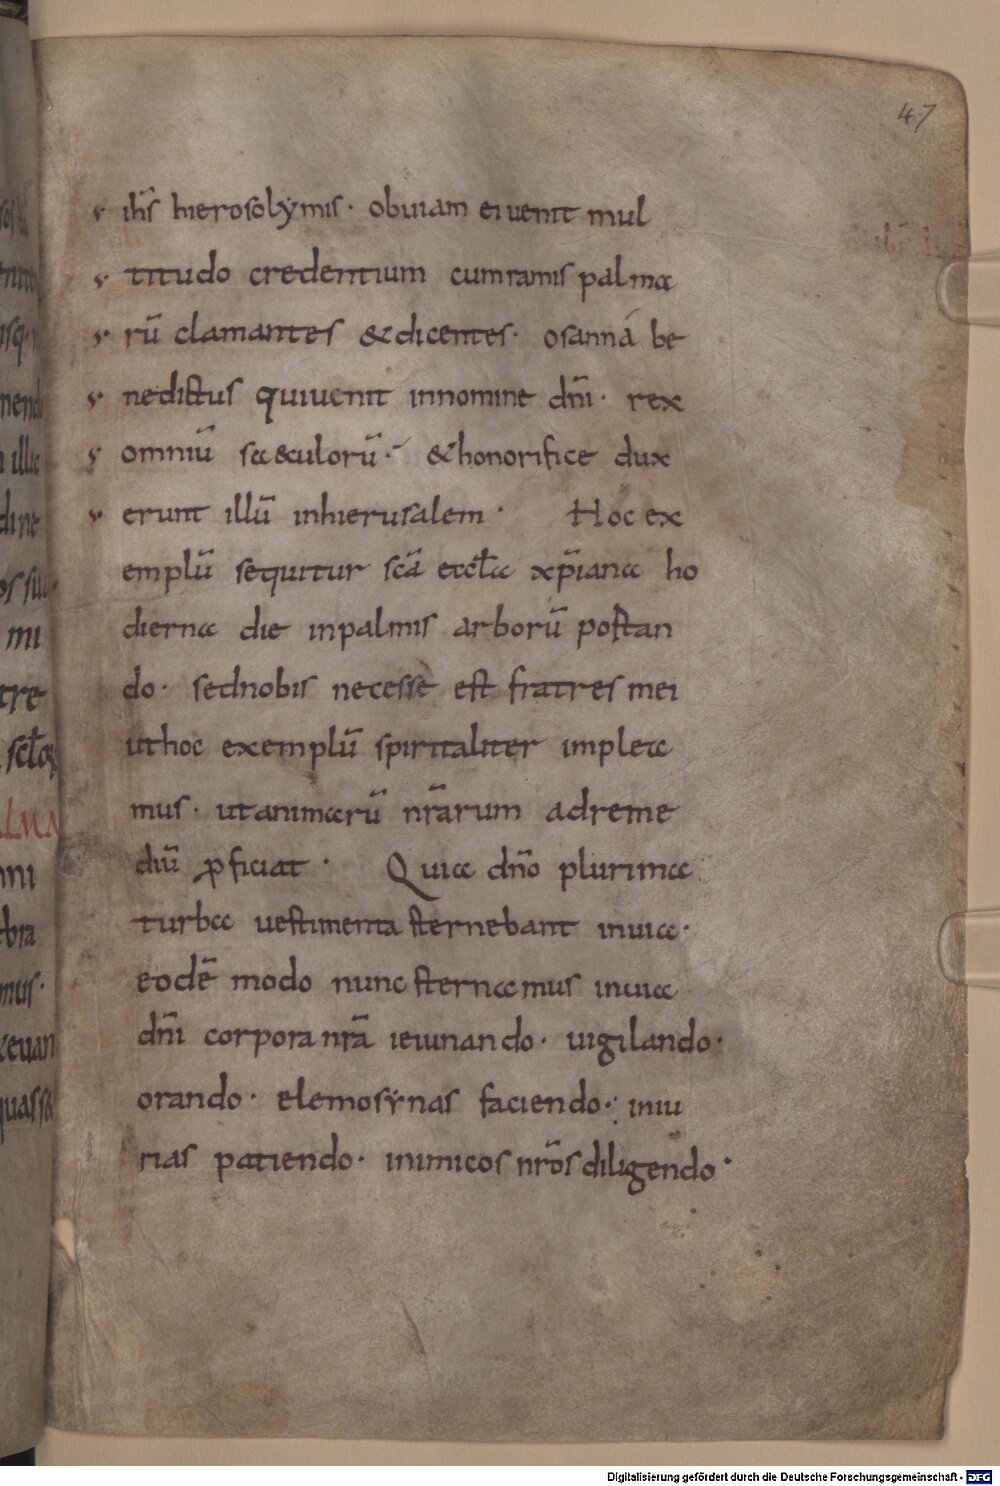 47
ih̅s hierosolẏmis· obuiam ei uenit mul
titudo credentium cum ramis palmae
rū clamantes & dicentes· osanná be
nedictus qui uenit in nomine dn̄i· rex
omniū saeculorū· & honorifice dux
erunt illū in hierusalem· Hoc ex
emplū sequitur scā eccłae xp̄iane ho
diernae die in palmis arborū postan
do· sed nobis necesse est fratres mei
ut hoc exemplū spiritaliter implea
mus· ut animaerū nr̄arum ad reme
diū ꝓficiat· Quiae dn̄o plurimae
turbae uestimenta sternebant in uiae·
eodē modo nunc sternaemus in uiae
dn̄i corpora nr̄a ieiunando· uigilando·
orando· elemosẏnas faciendo· iniu
rias patiendo· inimicos nr̄os diligendo·
Digitalisierung gefördert durch die Deutsche Forschungsgemeinschaft - DFG